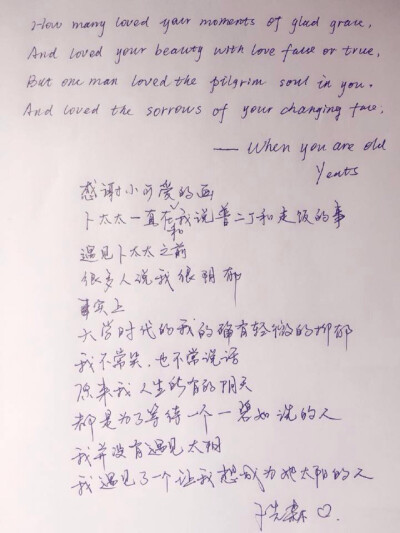 How many loved your moments of glad grace,
And loved your beauty with love false or true,
But one man loved the pilgrim soul in you.
And loved the sorrows of your changing face.
— When you are old
Yeats
感谢小可爱的画
卜太太一直在和我说普二丁和走饭的事
遇见卜太太之前
很多人说我很阴郁
事实上
大学时代的我的确有轻微的抑郁
我不常笑,也不常说话
原来我人生所有的阴天
都是为了等待一个一碧如洗的人
我并没有遇见太阳
我遇见了一个让我想成为她太阳的人